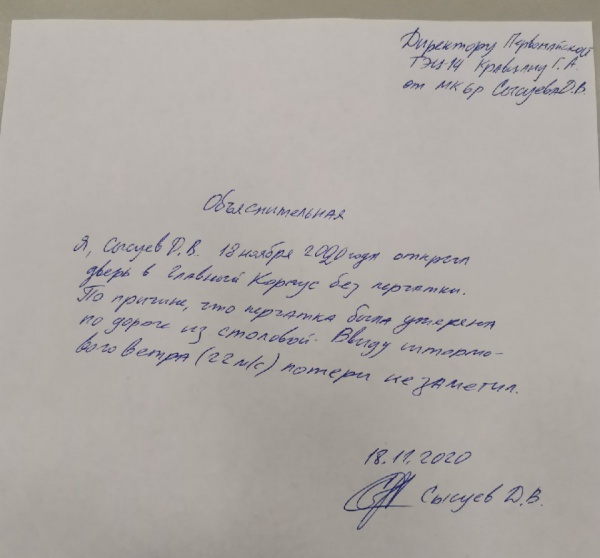 Директору Первомайской
ТЭЦ 14 Кравилну Г.А.
от МК 6р Сысуева Д.В.
Объяснительная
Я, Сысуев Д.В. 18 ноября 2020 года открыл
дверь в Главный Корпус без перчатки.
По причине, что перчатка была утеряна
по дороге из столовой. Ввиду штормо-
вого ветра (22 м/с) потери не заметил.
18.11.2020
Сысуев Д.В.